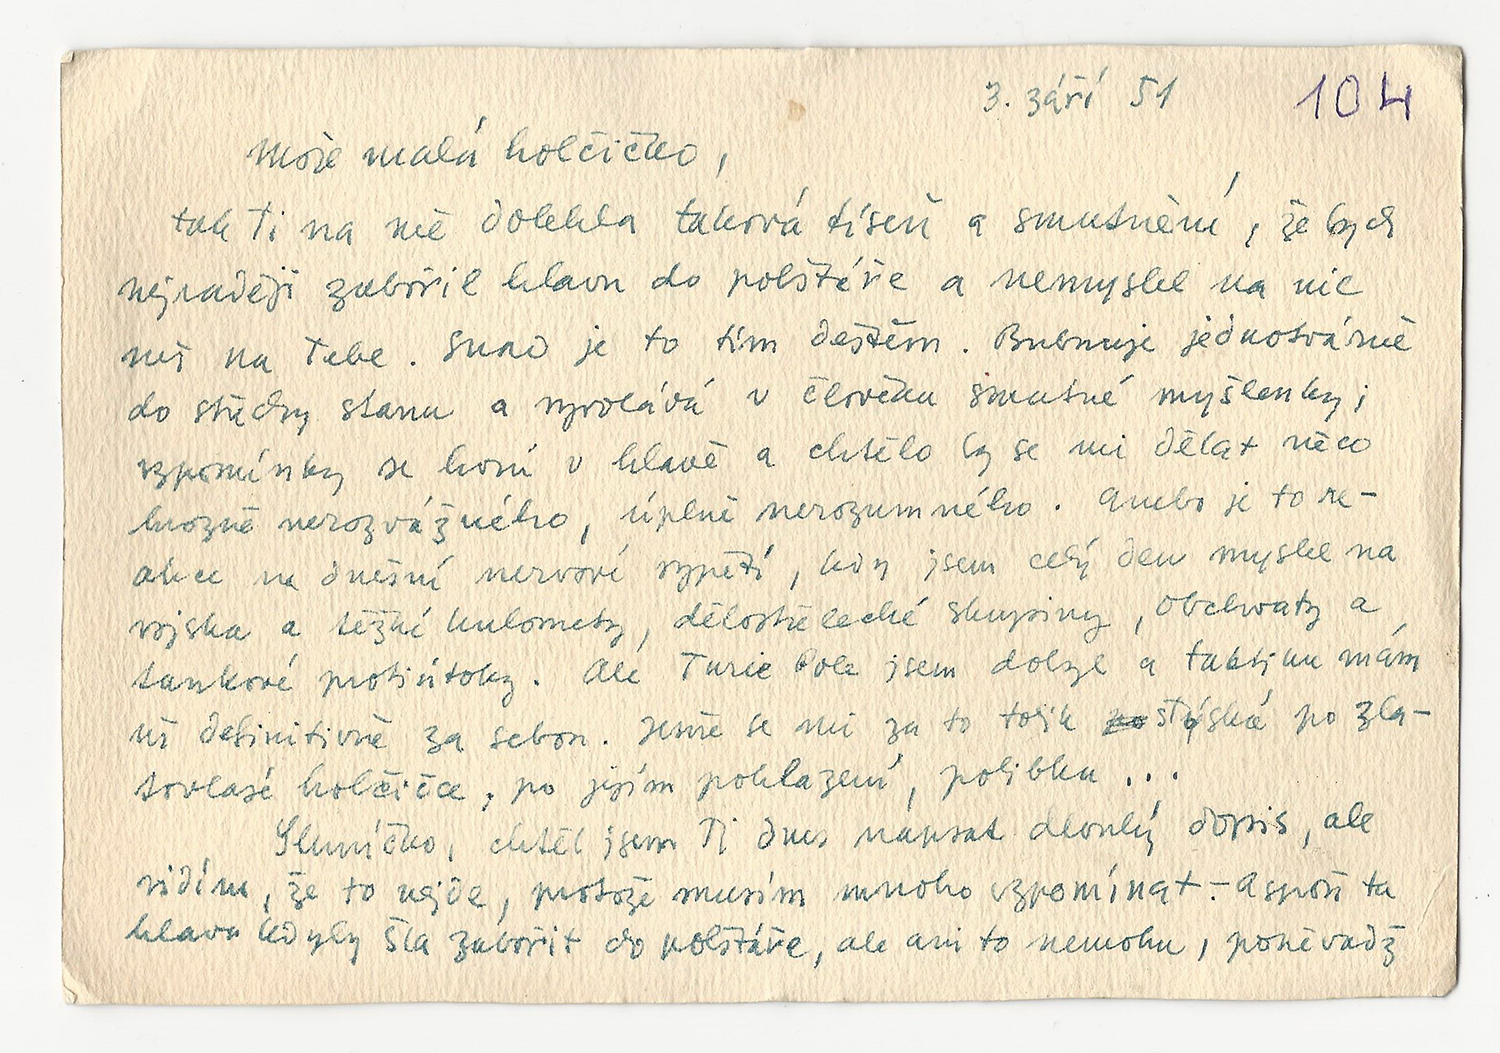 3. září 51 104
Moje malá holčičko,
tak Ti na mě dolehla taková tíseň a smutnění, že bych
nejraději zabořil hlavu do polštáře a nemyslel na nic
než na Tebe. Snad je to tím deštěm. Bubnuje jednotvárně
do střechy stanu a vyvolává v člověku smutné myšlenky;
vzpomínky se honí v hlavě a chtělo by se mi dělat něco
hrozně nerozvážného, úplně nerozumného. Anebo je to re-
akce na dnešní nervové vypětí, kdy jsem celý den myslel na
vojska a těžké kulomety, dělostřelecké skupiny, obchvaty a
tankové protiútoky. Ale Turie Pole jsem dobyl a taktiku mám
už definitivně za sebou. Jenže se mi za to tolik stýská po zla-
tovlasé holčičce, po jejím pohlazení, polibku ...
Sluníčko, chtěl jsem Ti dnes napsat dlouhý dopis, ale
vidím, že to nejde, protože musím mnoho vzpomínat. - Aspoň ta
hlava kdyby šla zabořit do polštáře, ale ani to nemohu, poněvadž